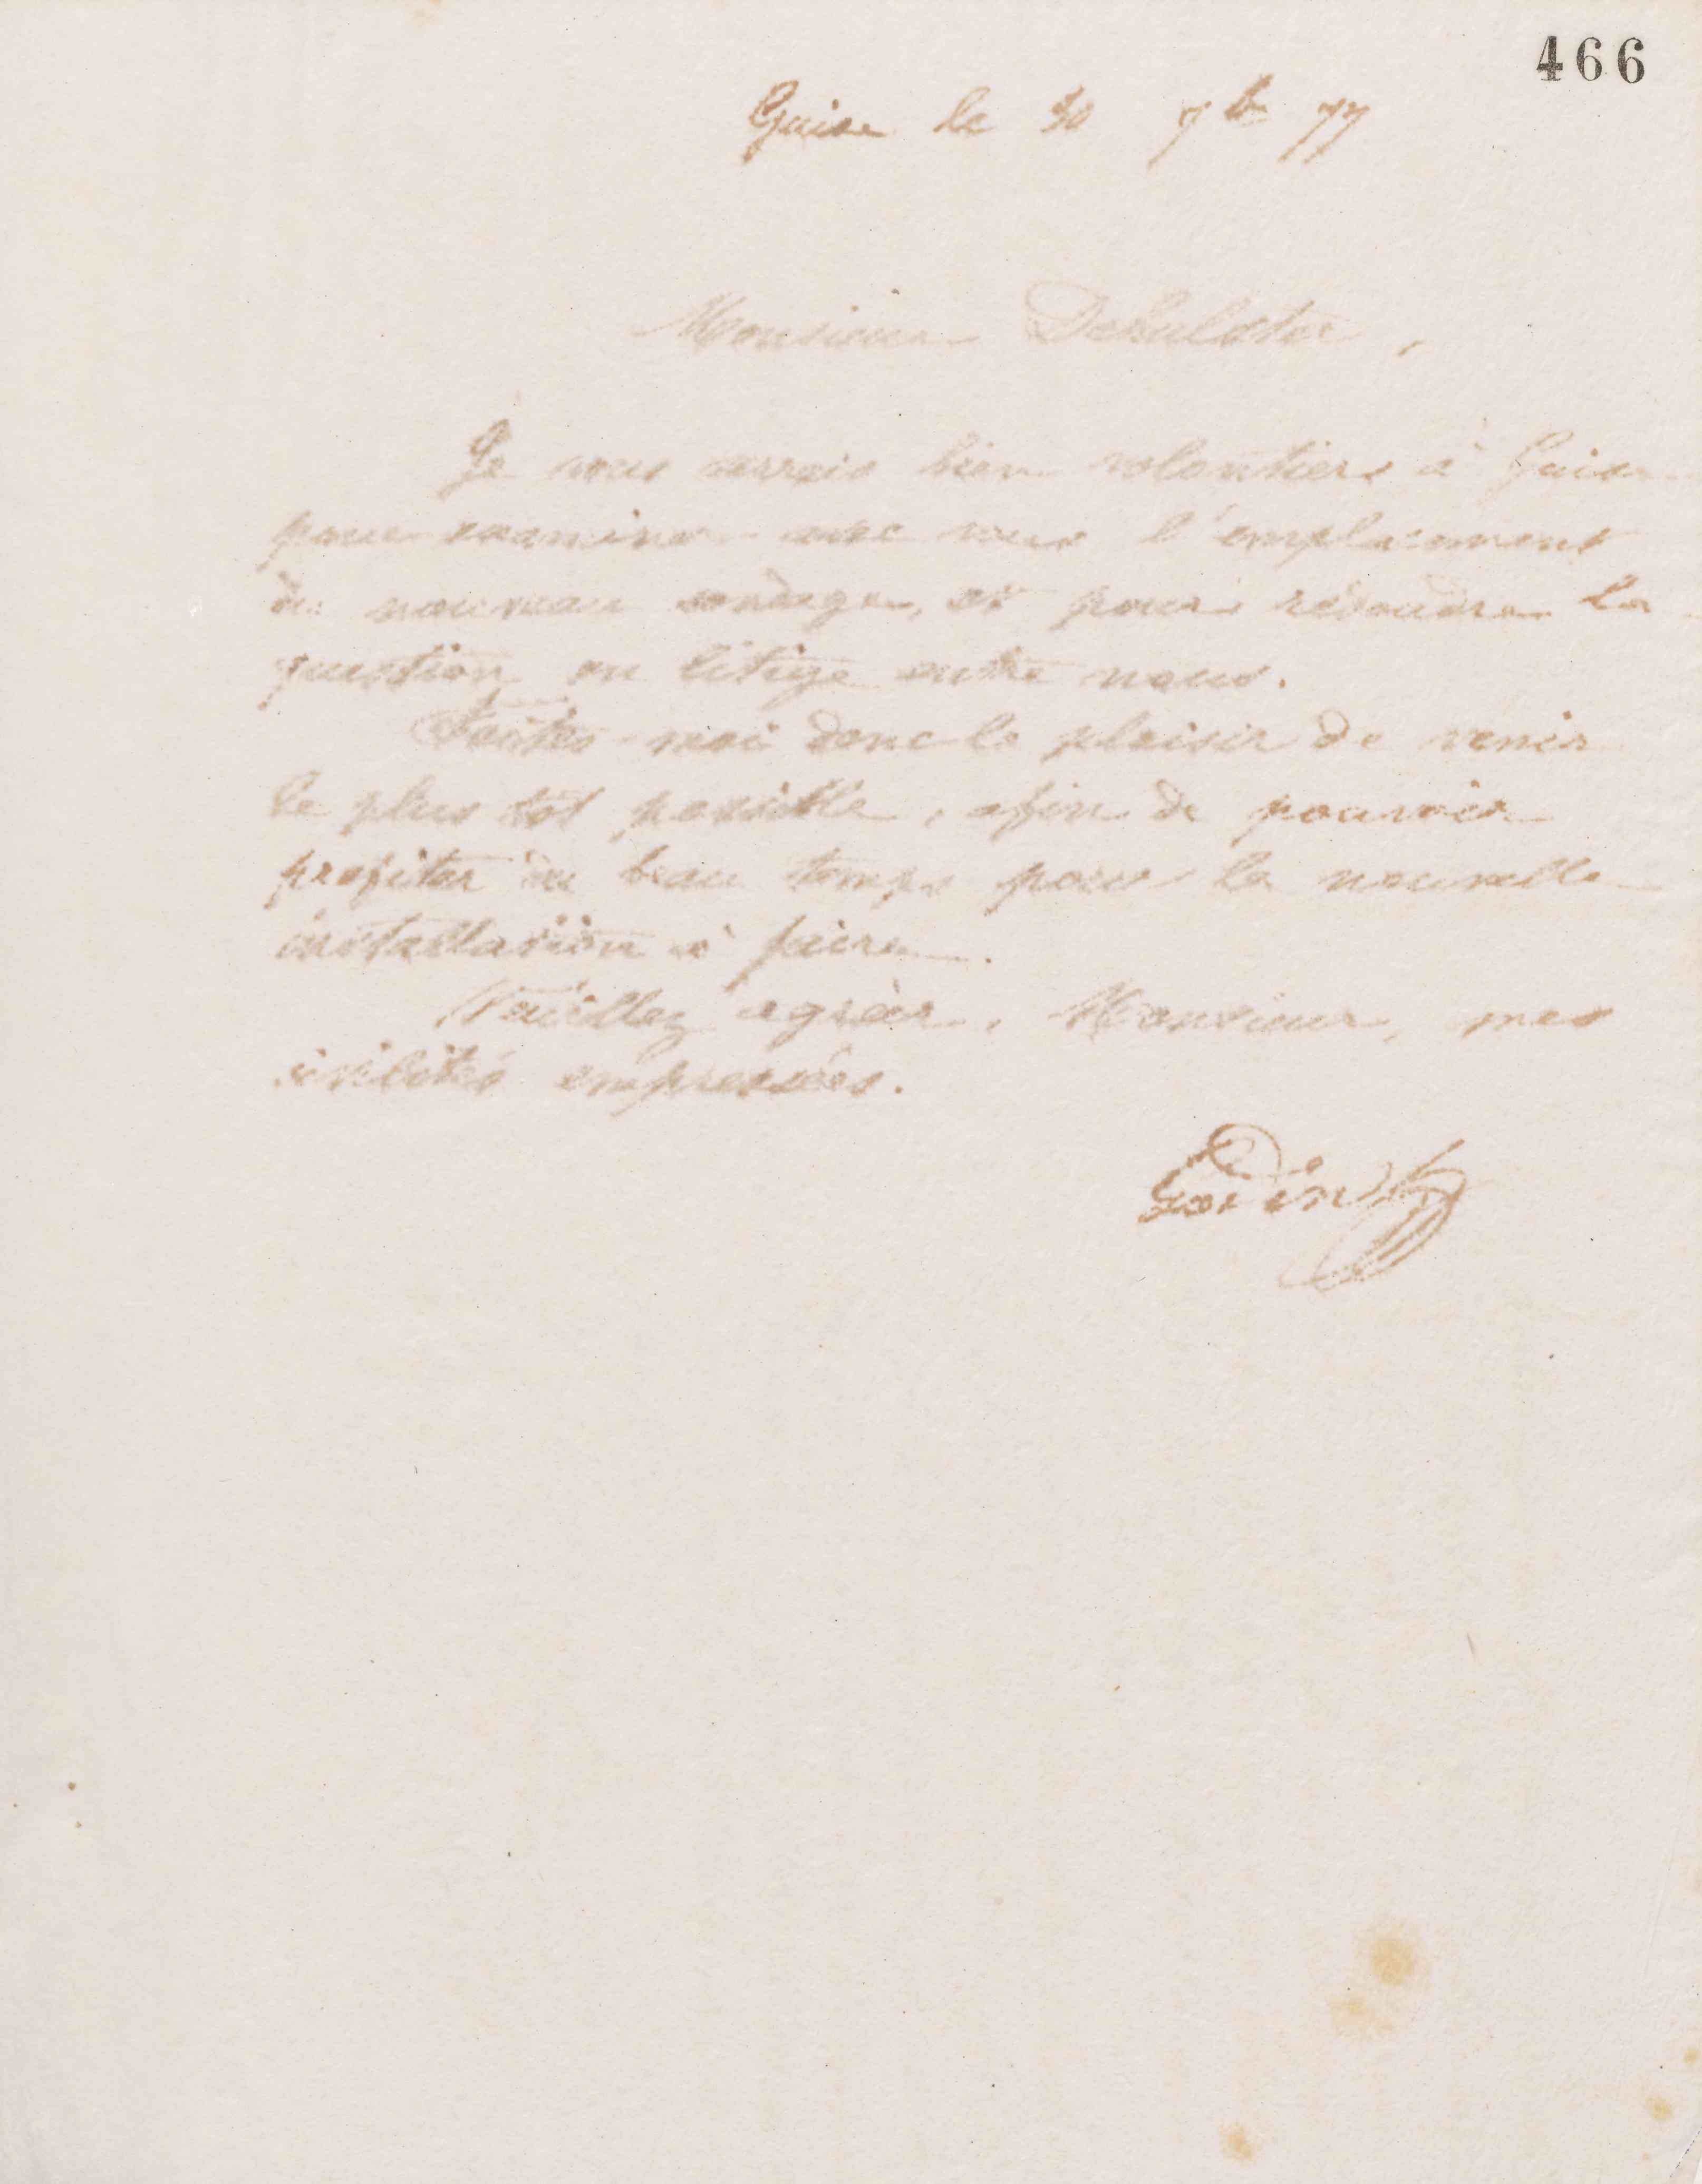 466
Guise le 30 7bre 77
Monsieur Dehulster,
Je vous verrais bien volontiers à Guise
pour examiner avec vous l'emplacement
du nouveau sondage, et pour résoudre la
question en litige entre nous.
Faites-moi donc le plaisir de venir
le plus tôt possible, afin de pouvoir
profiter du beau temps pour la nouvelle
installation à faire.
Veuillez agréer, Monsieur, mes
civilités empressées.
Godin